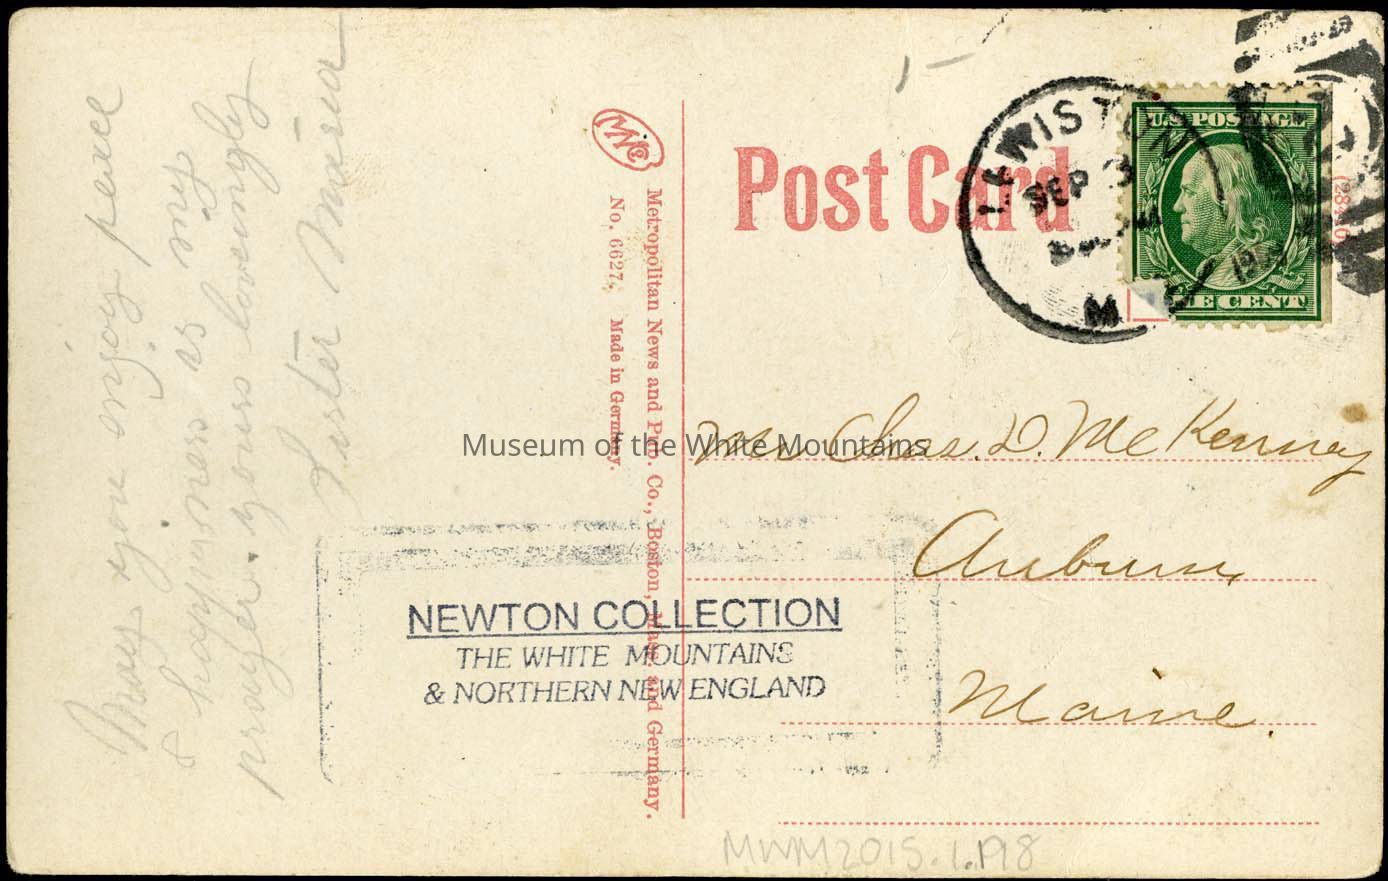 May you enjoy peace
& happiness is my
prayer. yours lovingly
Sister Maria
Metropolitan News and Pub. Co., Boston, Mass. and Germany.
No. 6627. Made in Germany.
Post Card
LEWISTON
SEP 3
M
U.S. POSTAGE
CENT
Chas. D. McKenney
Auburn,
Maine.
Museum of the White Mountains
NEWTON COLLECTION
THE WHITE MOUNTAINS
& NORTHERN NEW ENGLAND
MWM2015.1.198